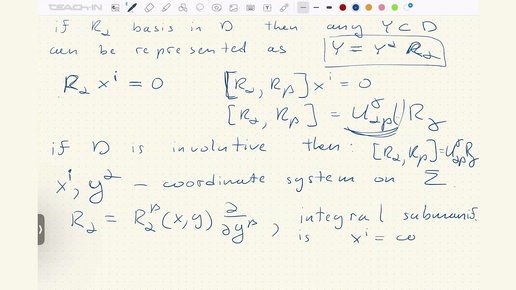 TEACH-IN
if R_α basis in D then any Y ⊂ D
can be represented as Y = Y^α R_α
R_α x^i = 0 [R_α, R_β] x^i = 0
[R_α, R_β] = U^γ_αβ R_γ
if D is involutive then: [R_α, R_β] = U^γ_αβ R_γ
x^i, y^α – coordinate system on Σ.
R_α = R^β_α (x, y) ∂/∂y^β, integral submanif.
is x^i = co